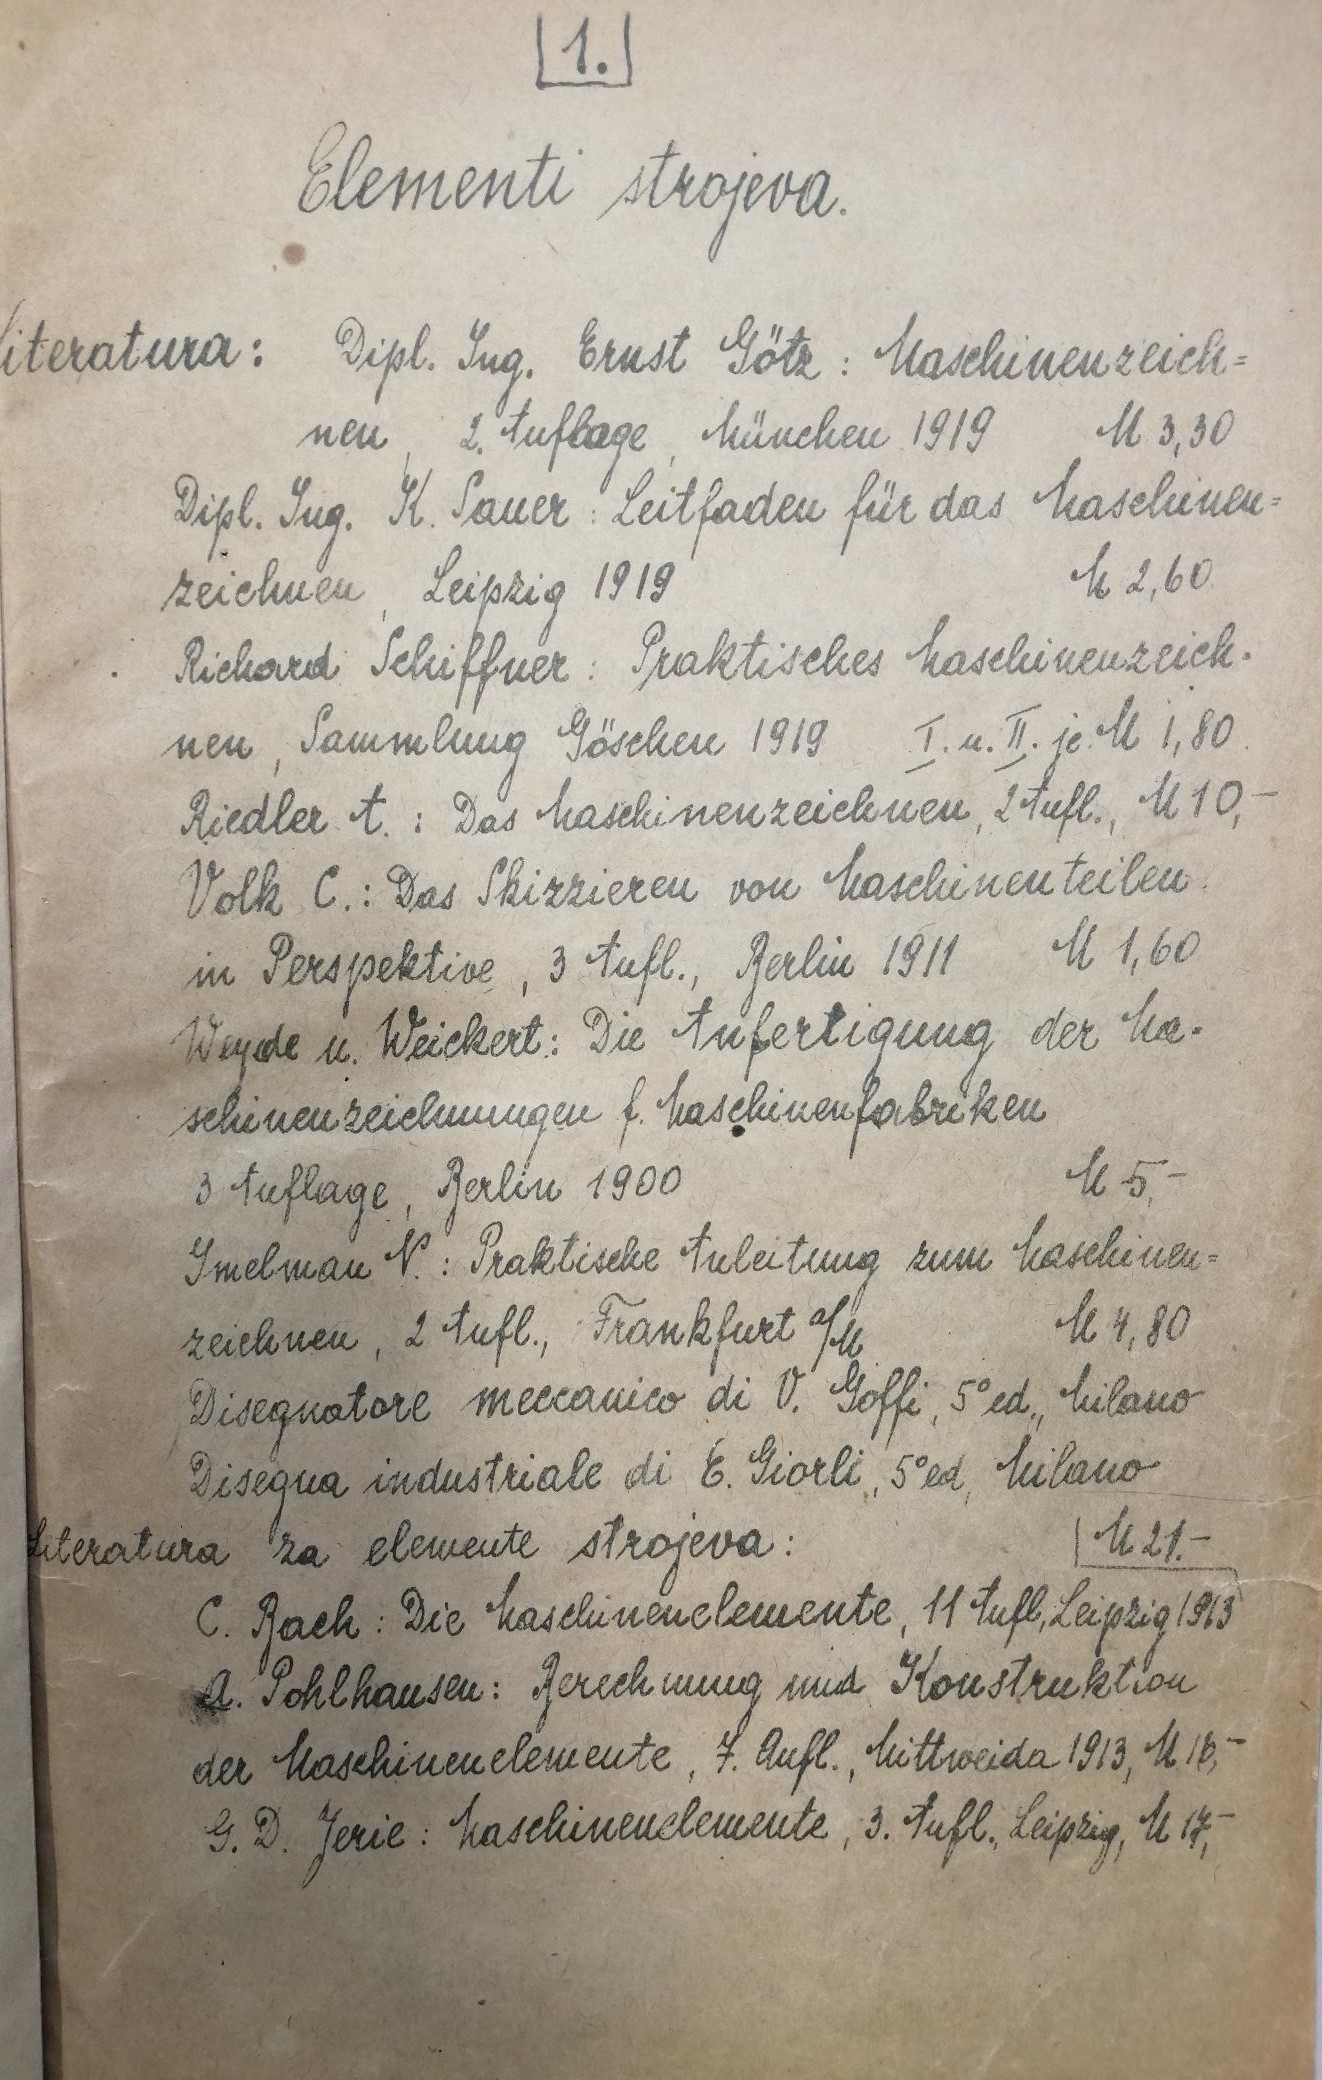 1.
Elementi strojeva.
Literatura: Dipl. Ing. Ernst Götz: Maschinenzeich=
nen, 2. Auflage, München 1919 M 3,30
Dipl. Ing. K. Sauer: Leitfaden für das Maschinen=
zeichnen, Leipzig 1919 M 2,60
Richard Schiffner: Praktisches Maschinenzeich-
nen, Sammlung Göschen 1919 I. u. II. je M 1,80.
Riedler A.: Das Maschinenzeichnen, 2 Aufl., M 10,-
Volk C.: Das Skizzieren von Maschinenteilen
in Perspektive, 3 Aufl., Berlin 1911 M 1,60
Weyde u. Weickert: Die Anfertigung der Ma-
schinenzeichnungen f. Maschinenfabriken
3 Auflage, Berlin 1900 M 5,-
Imelman N.: Praktische Anleitung zum Maschinen=
zeichnen, 2 Aufl., Frankfurt a/M M 4,80
Disegnatore meccanico di V. Goffi, 5° ed., Milano
Disegna industriale di E. Giorli, 5° ed, Milano
Literatura za elemente strojeva: M 21.-
C. Bach: Die Maschinenelemente, 11 Aufl, Leipzig 1913
A. Pohlhausen: Berechnung und Konstruktion
der Maschinenelemente, 7. Aufl., Mittweida 1913, M
G. D. Jerie: Maschinenelemente, 3. Aufl., Leipzig, M 17,-